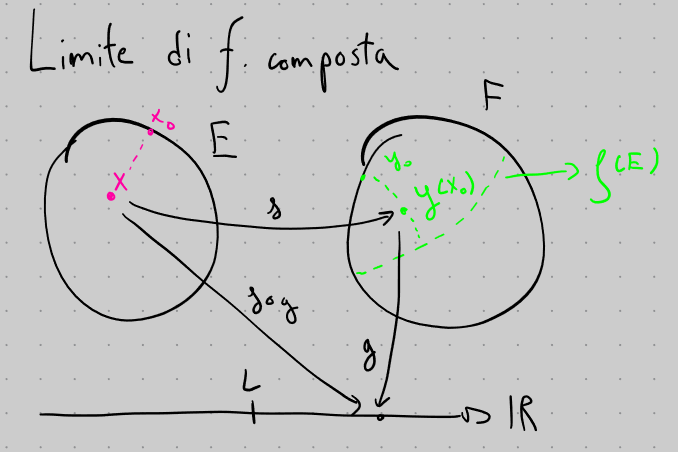 Limite di f. composta
x₀
E
F
x
y₀
y(x₀)
f(E)
f
f∘g
g
L
IR